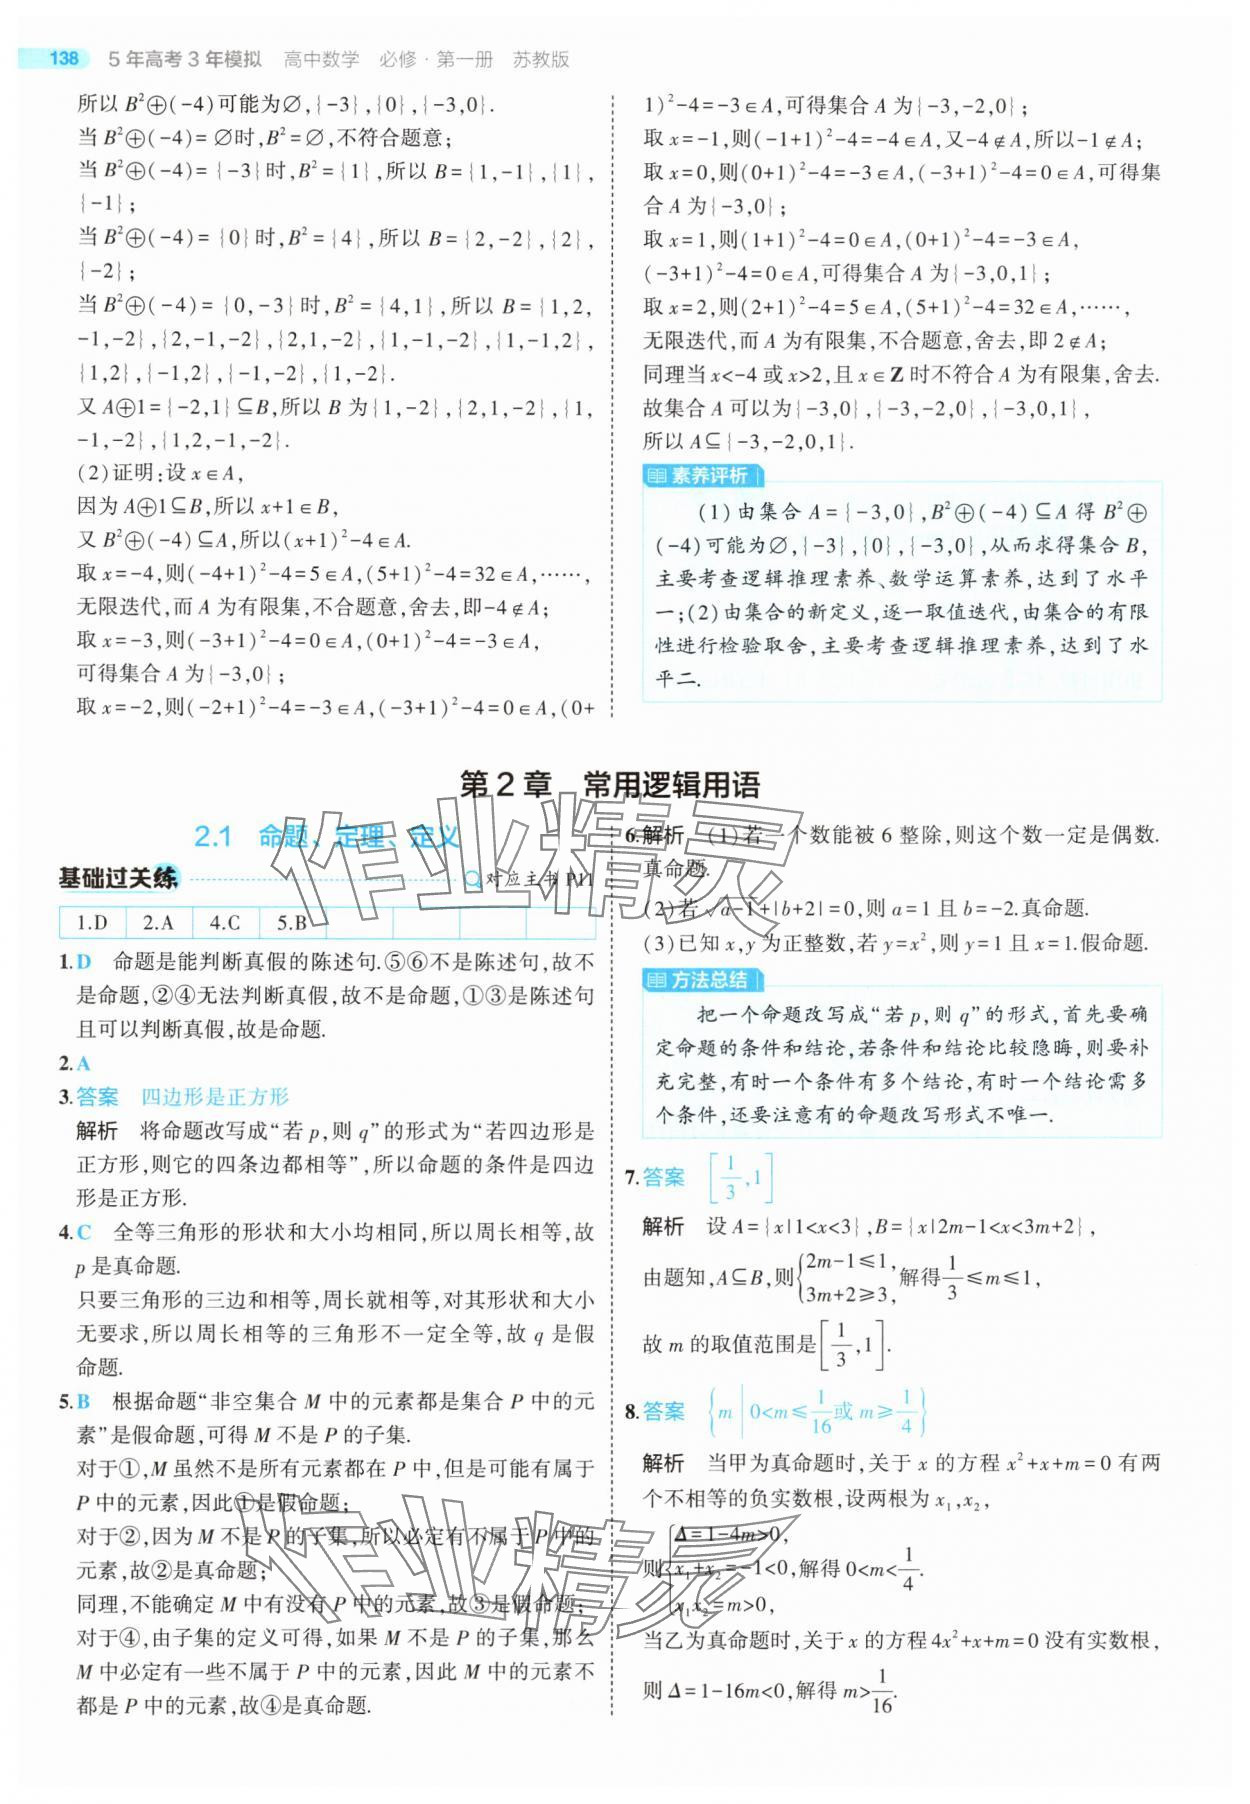 138 5年高考3年模拟 高中数学 必修·第一册 苏教版
所以 B²⊕(-4)可能为∅,{-3},{0},{-3,0}.
当 B²⊕(-4)=∅时,B²=∅,不符合题意;
当 B²⊕(-4)={-3}时,B²={1},所以 B={1,-1},{1},
{-1};
当 B²⊕(-4)={0}时,B²={4},所以 B={2,-2},{2},
{-2};
当 B²⊕(-4)={0,-3}时,B²={4,1},所以 B={1,2,
-1,-2},{2,-1,-2},{2,1,-2},{1,-1,-2},{1,-1,2},
{1,2},{-1,2},{-1,-2},{1,-2}.
又 A⊕1={-2,1}⊆B,所以 B 为{1,-2},{2,1,-2},{1,
-1,-2},{1,2,-1,-2}.
(2)证明:设 x∈A,
因为 A⊕1⊆B,所以 x+1∈B,
又 B²⊕(-4)⊆A,所以(x+1)²-4∈A.
取 x=-4,则(-4+1)²-4=5∈A,(5+1)²-4=32∈A,……,
无限迭代,而 A 为有限集,不合题意,舍去,即-4∉A;
取 x=-3,则(-3+1)²-4=0∈A,(0+1)²-4=-3∈A,
可得集合 A 为{-3,0};
取 x=-2,则(-2+1)²-4=-3∈A,(-3+1)²-4=0∈A,(0+
1)²-4=-3∈A,可得集合 A 为{-3,-2,0};
取 x=-1,则(-1+1)²-4=-4∈A,又-4∉A,所以-1∉A;
取 x=0,则(0+1)²-4=-3∈A,(-3+1)²-4=0∈A,可得集
合 A 为{-3,0};
取 x=1,则(1+1)²-4=0∈A,(0+1)²-4=-3∈A,
(-3+1)²-4=0∈A,可得集合 A 为{-3,0,1};
取 x=2,则(2+1)²-4=5∈A,(5+1)²-4=32∈A,……,
无限迭代,而 A 为有限集,不合题意,舍去,即 2∉A;
同理当 x<-4 或 x>2,且 x∈Z 时不符合 A 为有限集,舍去.
故集合 A 可以为{-3,0},{-3,-2,0},{-3,0,1},
所以 A⊆{-3,-2,0,1}.
素养评析
(1)由集合 A={-3,0},B²⊕(-4)⊆A 得 B²⊕
(-4)可能为∅,{-3},{0},{-3,0},从而求得集合 B,
主要考查逻辑推理素养、数学运算素养,达到了水平
一;(2)由集合的新定义,逐一取值迭代,由集合的有限
性进行检验取舍,主要考查逻辑推理素养,达到了水
平二.
第2章 常用逻辑用语
2.1 命题、定理、定义
基础过关练 对应主书 P11
1.D 2.A 4.C 5.B
1.D 命题是能判断真假的陈述句.⑤⑥不是陈述句,故不
是命题,②④无法判断真假,故不是命题,①③是陈述句
且可以判断真假,故是命题.
2.A
3.答案 四边形是正方形
解析 将命题改写成“若 p,则 q”的形式为“若四边形是
正方形,则它的四条边都相等”,所以命题的条件是四边
形是正方形.
4.C 全等三角形的形状和大小均相同,所以周长相等,故
p 是真命题.
只要三角形的三边和相等,周长就相等,对其形状和大小
无要求,所以周长相等的三角形不一定全等,故 q 是假
命题.
5.B 根据命题“非空集合 M 中的元素都是集合 P 中的元
素”是假命题,可得 M 不是 P 的子集.
对于①,M 虽然不是所有元素都在 P 中,但是可能有属于
P 中的元素,因此①是假命题;
对于②,因为 M 不是 P 的子集,所以必定有不属于 P 中的
元素,故②是真命题;
同理,不能确定 M 中有没有 P 中的元素,故③是假命题;
对于④,由子集的定义可得,如果 M 不是 P 的子集,那么
M 中必定有一些不属于 P 中的元素,因此 M 中的元素不
都是 P 中的元素,故④是真命题.
6.解析 (1)若一个数能被 6 整除,则这个数一定是偶数.
真命题.
(2)若√a-1+|b+2|=0,则 a=1 且 b=-2.真命题.
(3)已知 x,y 为正整数,若 y=x²,则 y=1 且 x=1.假命题.
方法总结
把一个命题改写成“若 p,则 q”的形式,首先要确
定命题的条件和结论,若条件和结论比较隐晦,则要补
充完整,有时一个条件有多个结论,有时一个结论需多
个条件,还要注意有的命题改写形式不唯一.
7.答案 [1/3,1]
解析 设 A={x|1<x<3},B={x|2m-1<x<3m+2},
由题知,A⊆B,则{2m-1≤1, 3m+2≥3, 解得1/3≤m≤1,
故 m 的取值范围是[1/3,1].
8.答案 {m|0<m≤1/16或 m≥1/4}
解析 当甲为真命题时,关于 x 的方程 x²+x+m=0 有两
个不相等的负实数根,设两根为 x₁,x₂,
则{Δ=1-4m>0, x₁+x₂=-1<0, x₁x₂=m>0, 解得 0<m<1/4.
当乙为真命题时,关于 x 的方程 4x²+x+m=0 没有实数根,
则 Δ=1-16m<0,解得 m>1/16.
作业精灵
作业精灵